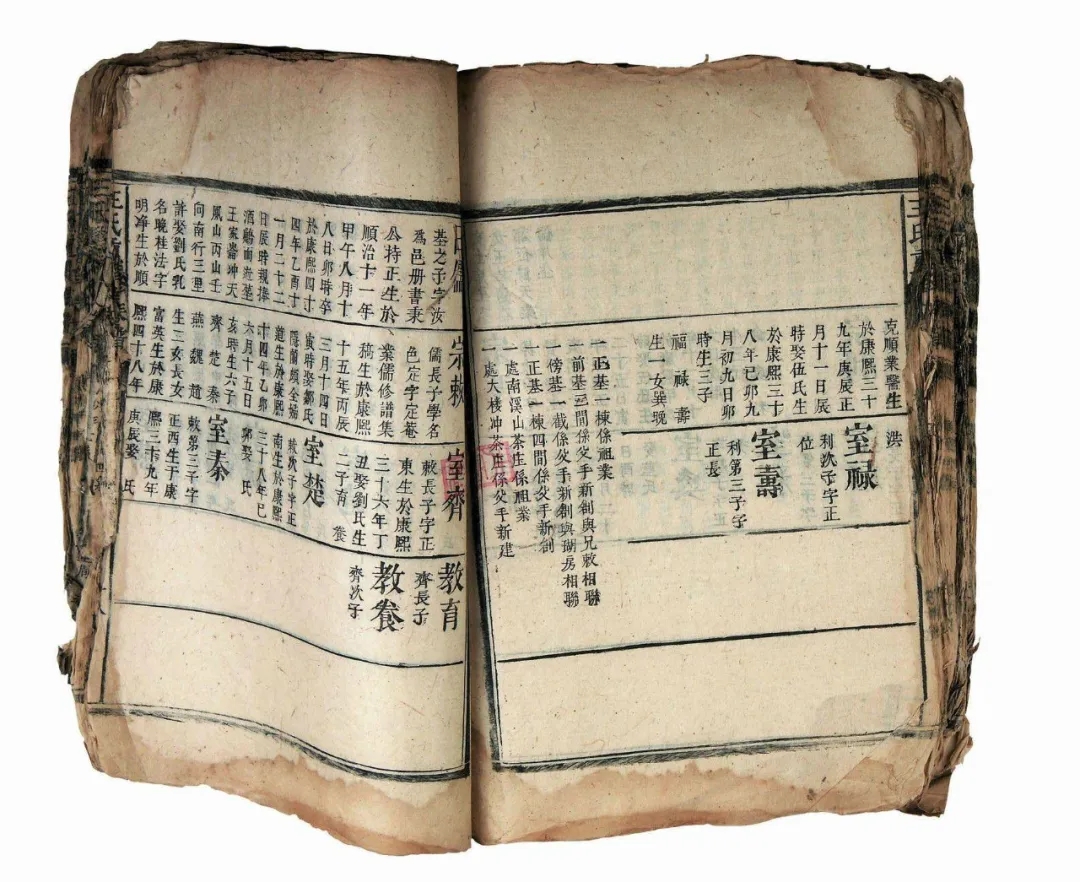 克順業醫生
於康熙三十
九年庚辰正
月十一日辰
時娶伍氏生
於康熙三十
八年己卯九
月初九日卯
時生三子
福 祿 壽
生一女巽晚
一正基一棟係祖業
一前基三間係父手新創與兄敕相聯
一傍基一截係父手新創與瑚房相聯
一正基一棟四間係父手新創
一處南溪山茶庄係祖業
一處大棧冲茶庄係父手新建
洪
室祿
利次守字正
位
室壽
利第三子字
正長
基之子字汝
為邑册書秉
公持正生於
順治十一年
甲午八月十
八日卯時卒
於康熙四十
四年乙酉十
一月二十二
日辰時親捧
王家崙坤天
鳳山丙山壬
向南行三里
許娶劉氏乳
名晚桂法字
明净生於順
宗敕
儒長子學名
色定字定菴
業儒修譜集
稿生於康熙
十五年丙辰
三月十四日
寅時娶鄒氏
道生於康熙
十四年乙卯
六月十五日
亥時生六子
齊 楚 秦
燕 魏 趙
生三女長女
富英生於康
熙四十八年
室齊
敕長子字正
東生於康熙
三十六年丁
丑娶劉氏生
二子育 養
室楚
敕次子字正
南生於康熙
三十八年己
卯娶 氏
室秦
敕第三子字
正西生于康
熙三十九年
庚辰娶 氏
教育
齊長子
教養
齊次子